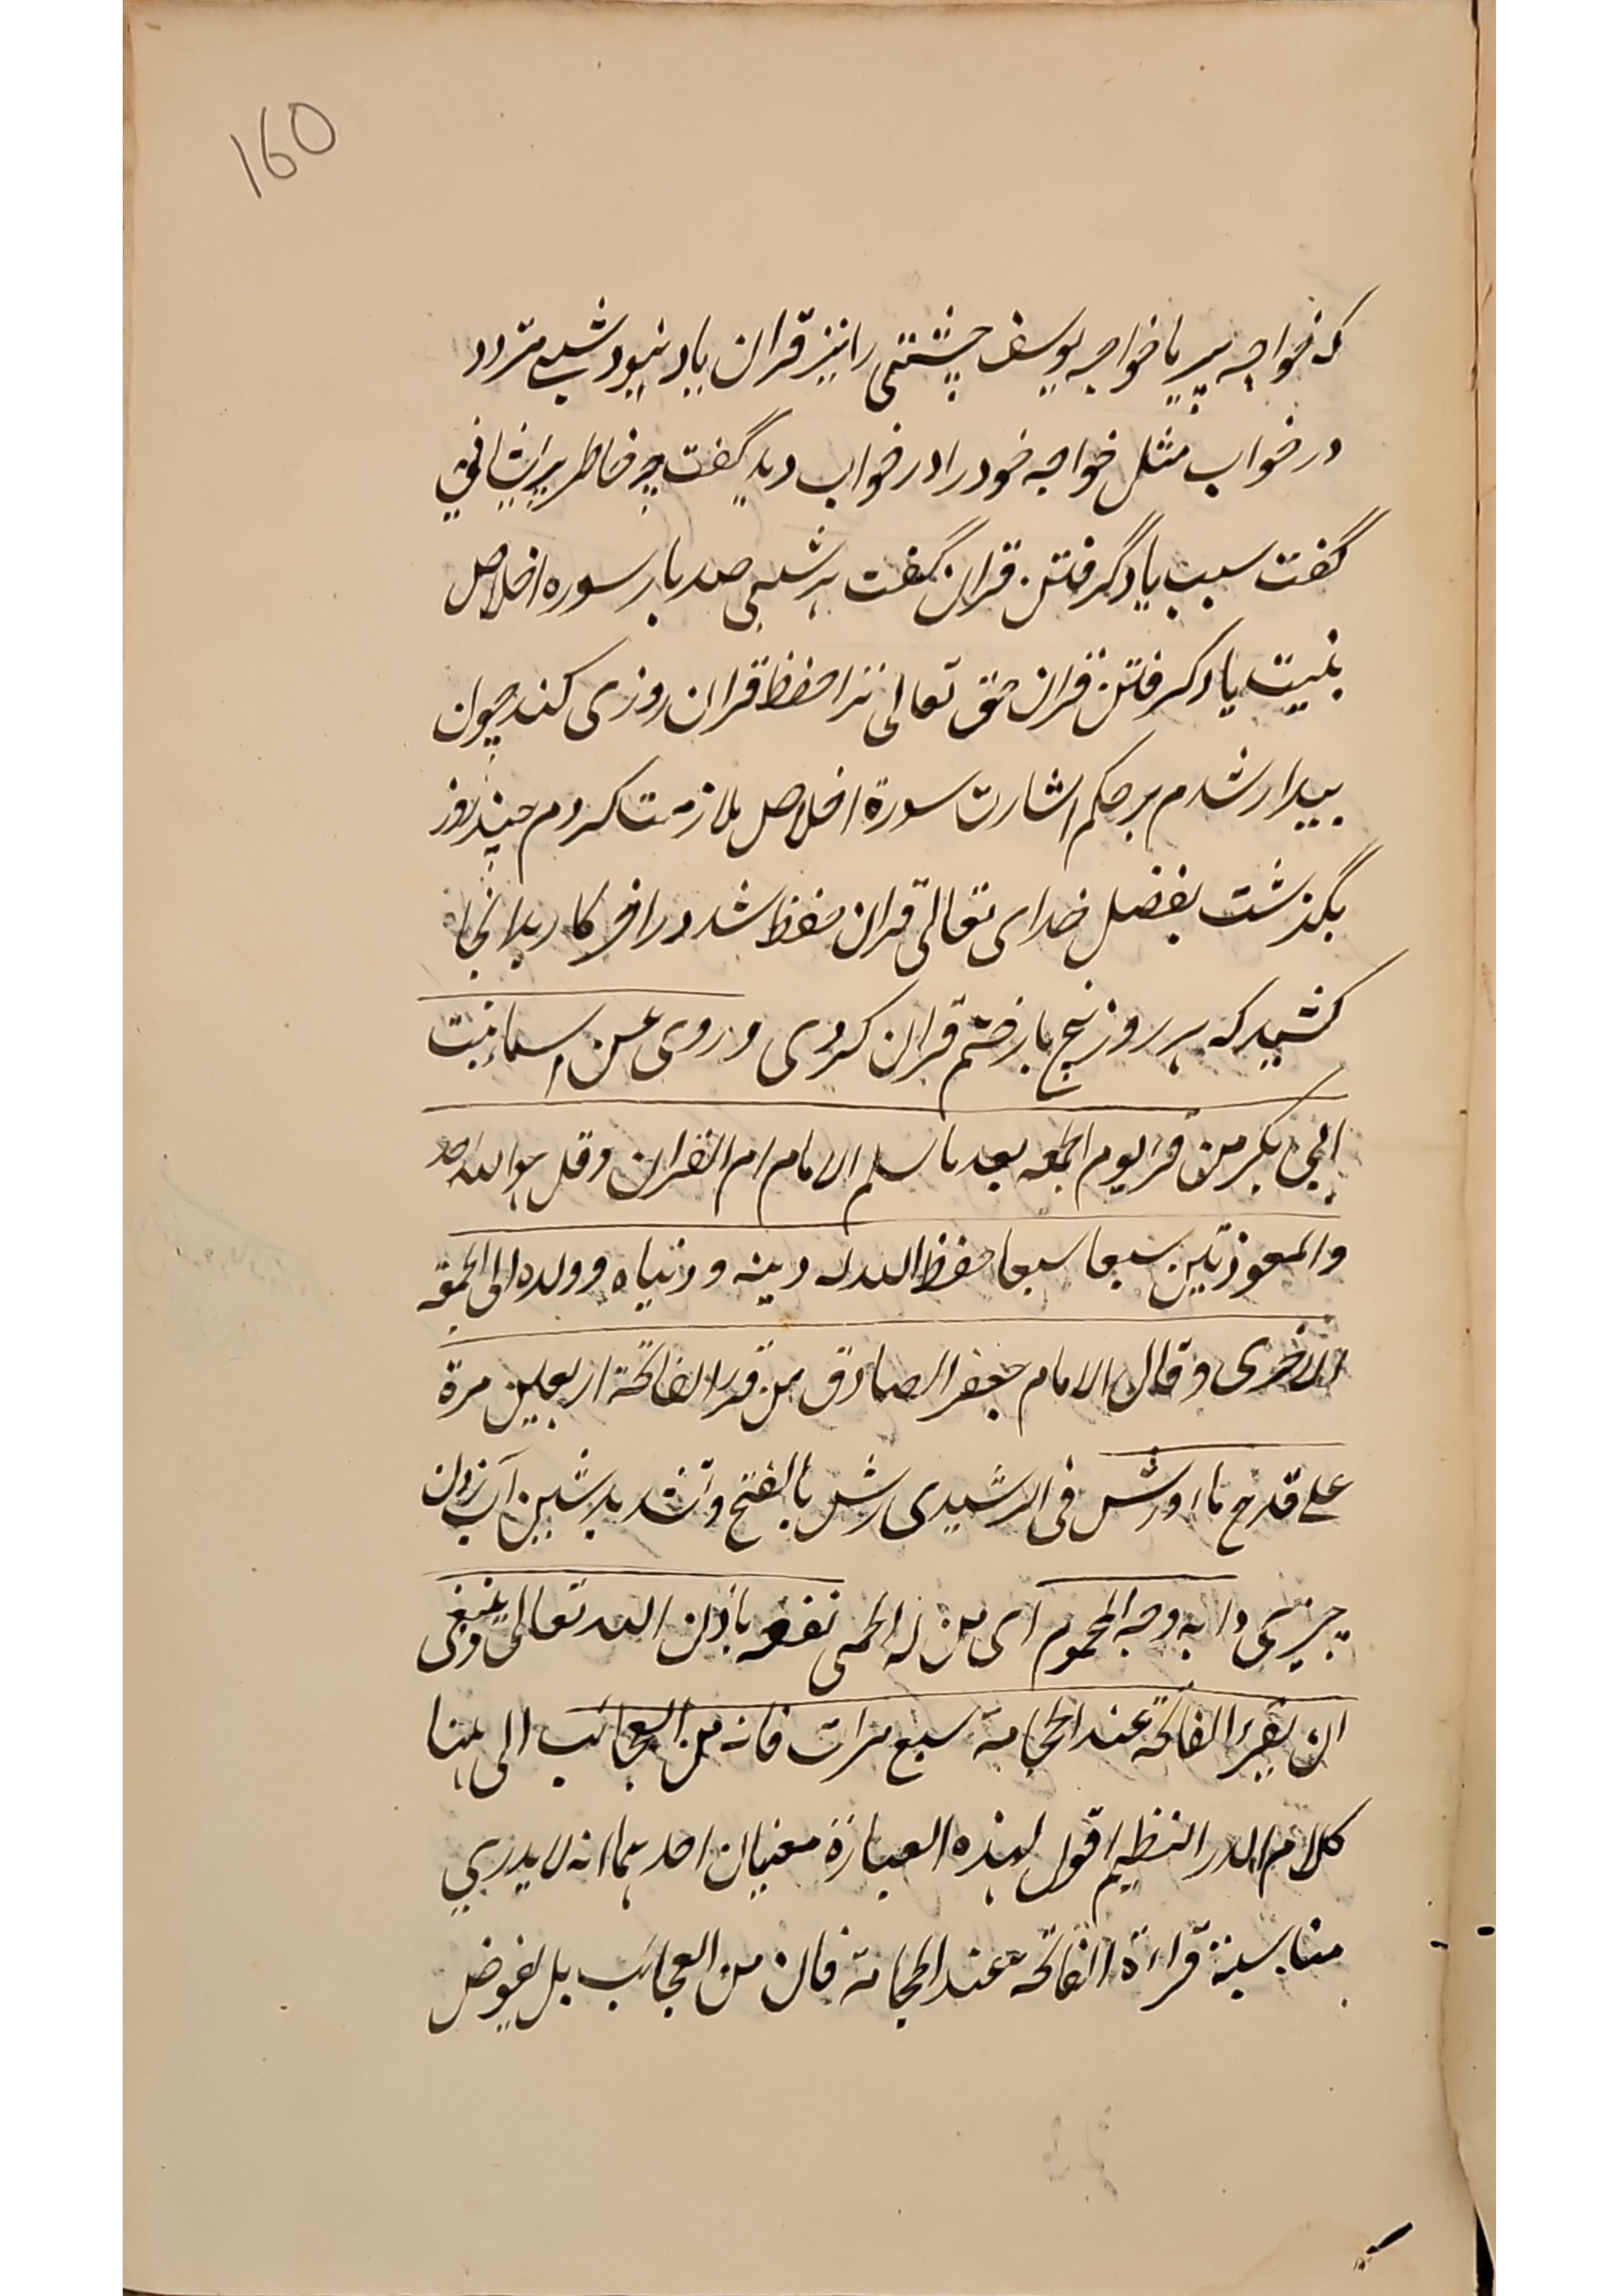 160
که خواجه پیر با خواجه یوسف چشتی را نیز قران یاد نبود شبے متردد
در خواب مثل خواجه خود را در خواب دید گفت چه خاطر پریشانی
گفت سبب یاد گرفتن قران گفت هر شبی صد بار سوره اخلاص
بنیت یاد گرفتن قران حق تعالی ترا حفظ قران روزی کند چون
بیدار شدم بر حکم اشارت سورة اخلاص ملازمت کردم چند روز
بگذشت بفضل خدای تعالی قران حفظ شد در اخر کار بدانجا
کشید که هر روز پنج بار ختم قران کردی و روی عن اسماء بنت
ابی بکر من قرا یوم الجمعه بعد ما سلم الامام ام القران و قل هو الله احد
والمعوذتین سبعا سبعا حفظ الله له دینه و دنیاه و ولده الی الجمعه
الاخری و قال الامام جعفر الصادق من قرا الفاتحة اربعین مرة
علی قدح ماء و رش فی الرشیدی رش بالفتح و تشدید شین آب زدن
چیزی را به وجه المحموم ای من له الحمی نفعه باذن الله تعالی و ینبغی
ان یقرء الفاتحة عند الحجامة سبع مرات فانه من العجائب الی هنا
کلام الدر النظیم اقول لهذه العبارة معنیان احدهما انه لا یدری
مناسبة قراءة الفاتحة عند الحجامة فان من العجائب بل یفوض